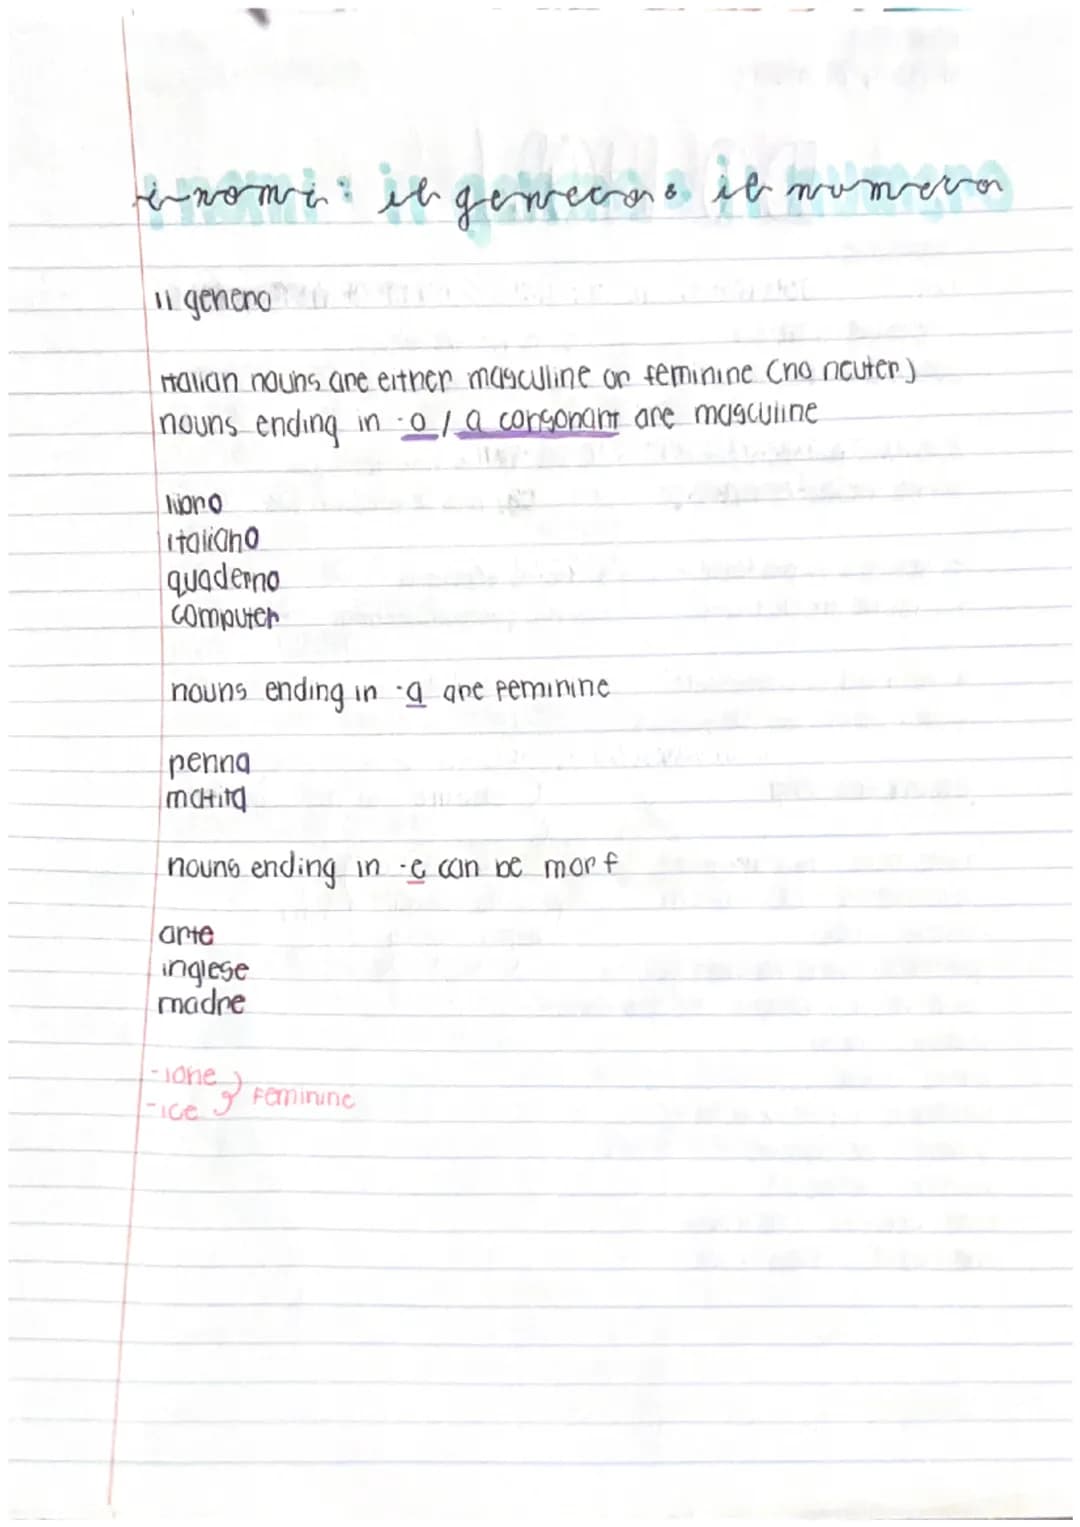 i nomi: il genere & il numero
il genere
italian nouns are either masculine or feminine (no neuter)
nouns ending in -o / a consonant are masculine
libro
italiano
quaderno
computer
nouns ending in -a are feminine
penna
matita
nouns ending in -e can be m or f
arte
inglese
madre
-ione
-ice } feminine